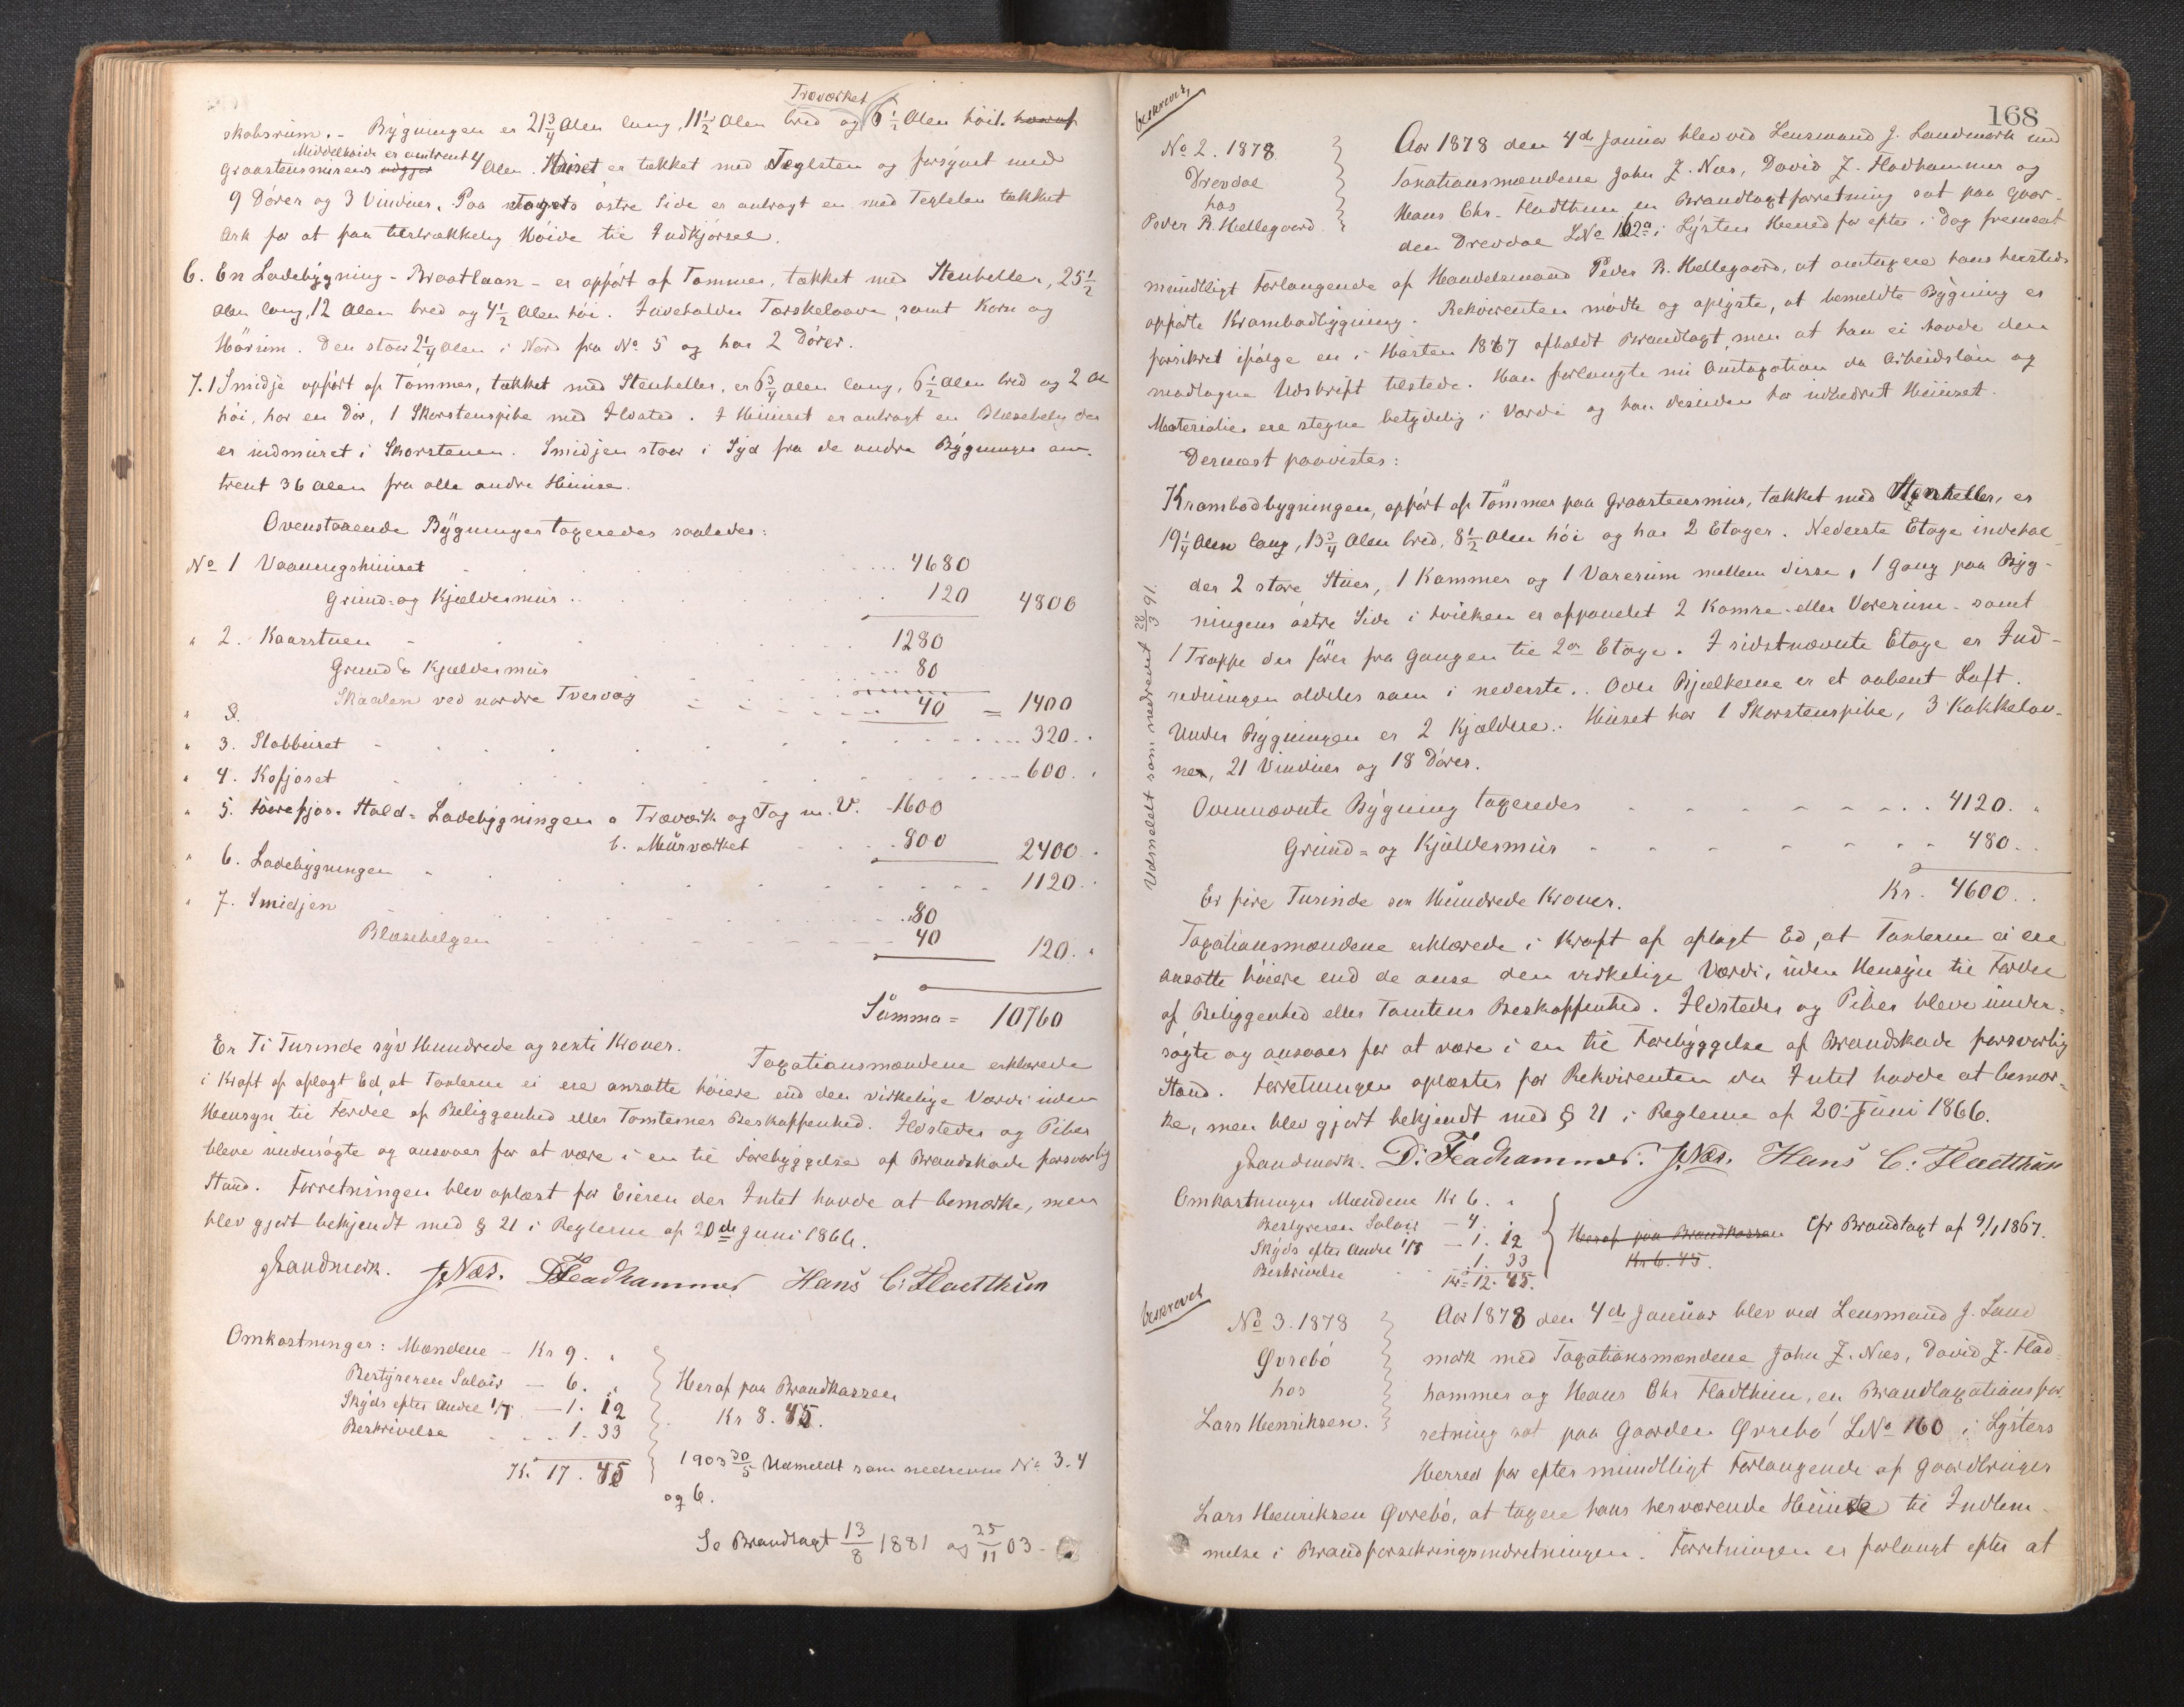 Træværket
skabsrum. - Bygningen er 21 3/4 Alen lang, 11 1/2 Alen bred og 6 1/2 Alen höit. hvoraf
Middelhöide er omtrent
Graastensmurens udgjør 4 Alen. Huset er tækket med Teglsten og forsynet med
9 Dörer og 3 Vinduer. Paa Tagets östre Side er anbragt en med Teglsten tækket
Ark for at faa tilstrækkelig Höide til Indkjörsel.
6. En Ladebygning - Braatlaan - er opfört af Tømmer, tækket med Stenheller, 25 1/2
Alen lang, 12 Alen bred og 4 1/2 Alen höi. Indeholder Tærskelaave, samt Korn og
Hörum. Den staar 2 1/4 Alen i Nord fra No 5 og har 2 Dörer.
7. 1 Smidje opfört af Tömmer, tækket med Stenheller, er 6 3/4 Alen lang, 6 1/2 Alen bred og 2 Al
höi, har en Dör, 1 Skorstenspibe med Ildsted. I Huuset er anbragt en Blæsebelg der
er indmuret i Skorstenen. Smidjen staar i Syd fra de andre Bygninger om-
trent 36 Alen fra alle andre Huuse.
Ovenstaaende Bygninger taxeredes saaledes:
No 1 Vaaningshuuset 4680
Grund- og Kjældermuur 120 4800
" 2. Kaarstuen 1280
Grund & Kjældermuur 80
Skaalen ved nordre Tvervæg 40 = 1400
" 3. Stabburet 320. "
" 4. Kofjöset 600. "
" 5. Faarefjös- Stald- Ladebygningen a Træværk og Tag m. V. 1600
b. Muurværket 800 2400 "
" 6. Ladebygningen 1120. "
" 7. Smidjen 80
Blæsebelgen 40 120. "
Summa = 10760
Er Ti Tusinde syv Hundrede og sexti Kroner. Taxationsmændene erklærede
i Kraft af aflagt Ed at Taxterne ei ere ansatte höiere end den virkelige Værdi uden
Hensyn til Fordel af Beliggenhed eller Tomternes Beskaffenhed. Ildsteder og Piber
bleve undersögte og ansaaes for at være i en til Forebyggelse af Brandskade forsvarlig
Stand. Forretningen blev oplæst for Eieren der Intet havde at bemærke, men
blev gjort bekjendt med § 21 i Reglerne af 20de Juni 1866.
JLandmark. JNæs. DFladhammer Hans C: Fladthun
Omkostninger: Mændene - Kr 9. "
Bestyreren Salair - 6. "
Skyds efter Andre 1/7 - 1. 12
Beskrivelse 1. 33
Kr. 17. 45
Heraf paa Brandkassen
Kr 8. 45.
1903 30/5 Udmeldt som nedrevne No 3. 4
og 6.
Se Brandtaxt 13/8 1881 og 25/11 03 -
168
beskrevet,
No 2. 1878.
Drevdal
hos
Peder R. Hellegaard
Aar 1878 den 4de Januar blev ved Lensmand J. Landmark med
Taxationsmændene John J. Næs, David J. Fladhammer og
Hans Chr. Fladthun en Brandtaxtforretning sat paa Gaar-
den Drevdal LNo 162a i Lysters Herred for efter i Dag fremsat
mundtligt Forlangende af Handelsmand Peder R. Hellegaard, at omtaxere hans hersteds
opförte Krambodbygning. Rekvirenten mödte og oplyste, at bemeldte Bygning er
forsikret ifölge en i Hösten 1867 afholdt Brandtaxt, men at han ei havde den
modtagne Udskrift tilstede. Han forlangte nu Omtaxation da Arbeidslön og
Materialier ere stegne betydelig i Værdi og han desuden har udbedret Huuset.
Dernæst paavistes:
Krambodbygningen, opfört af Tömmer paa Graastensmuur, tækket med Stenheller, er
19 1/4 Alen lang, 13 3/4 Alen bred, 8 1/2 Alen höi og har 2 Etager. Nederste Etage indehol-
der 2 store Stuer, 1 Kammer og 1 Varerum mellem disse, 1 Gang paa Byg-
ningens östre Side i hvilken er afpanelet 2 Kamre- eller Varerum - samt
1 Trappe der förer fra Gangen til 2den Etage. I sidstnævnte Etage er Ind-
redningen aldeles som i nederste. Over Bjælkerne er et aabent Loft.
Under Bygningen er 2 Kjældere. Huuset har 1 Skorstenspibe, 3 Kakkelov-
ne, 21 Vinduer og 18 Dörer.
Udmeldt som nedrevet 28/3 91.
Ovennævnte Bygning taxeredes 4120. "
Grund- og Kjældermuur 480. "
Kr. 4600. "
Er fire Tusinde sex Hundrede Kroner.
Taxationsmændene erklærede i Kraft af aflagt Ed, at Taxterne ei ere
ansatte höiere end de anse den virkelige Værdi, uden Hensyn til Fordel
af Beliggenhed eller Tomtens Beskaffenhed. Ildsteder og Piber bleve under-
sögte og ansaaes for at være i en til Forebyggelse af Brandskade forsvarlig
Stand. Forretningen oplæstes for Rekvirenten der Intet havde at bemær-
ke, men blev gjort bekjendt med § 21 i Reglerne af 20. Juni 1866.
JLandmark. D: Fladhammer. JNæs. Hans C: Fladthun
Omkostninger Mændene Kr 6. "
Bestyreren Salair - 4. "
Skyds efter Andre 1/7 - 1. 12
Beskrivelse 1. 33
Kr 12. 45.
Heraf paa Brandkassen
Kr 6. 45.
Cfr Brandtaxt af 9/1 1867.
beskrevet
No 3. 1878
Øvrebö
hos
Lars Henriksen.
Aar 1878 den 4de Januar blev ved Lensmand J. Land
mark med Taxationsmændene John J. Næs, David J. Flad-
hammer og Hans Chr Fladthun, en Brandtaxationsfor-
retning sat paa Gaarden Øvrebö LNo 160 i Lysters
Herred for efter mundtligt Forlangende af Gaardbruger
Lars Henriksen Øvrebö, at taxere hans herværende Huuse til Indlem-
melse i Brandforsikringsindretningen. Forretningen er forlangt efter at